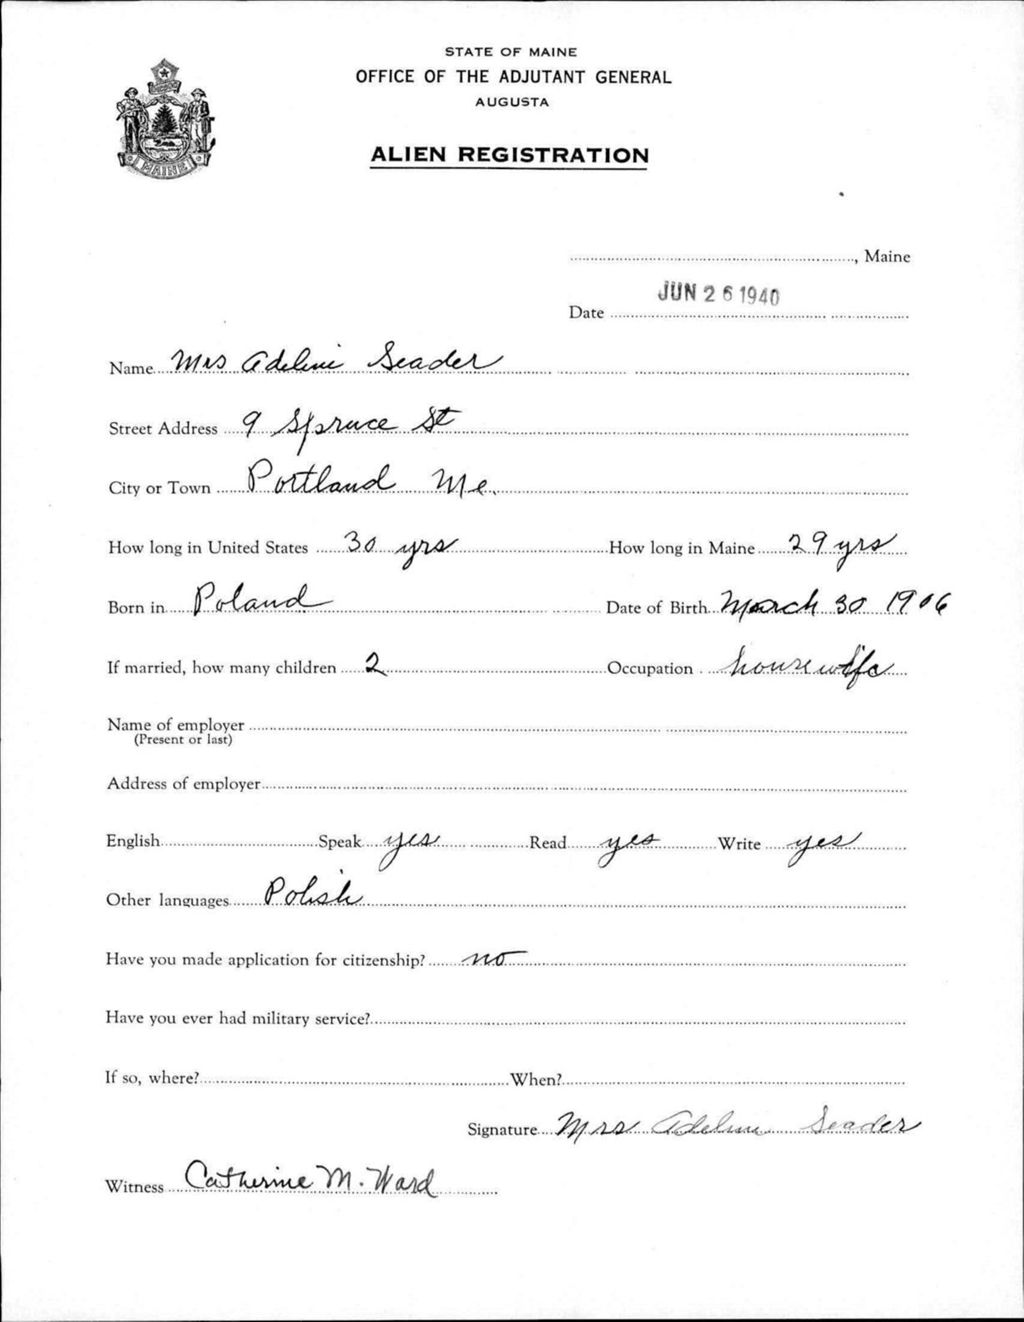 STATE OF MAINE
OFFICE OF THE ADJUTANT GENERAL
AUGUSTA
ALIEN REGISTRATION
MAINE
, Maine
Date JUN 26 1940
Name Mrs Adeline Seader
Street Address 9 Spruce St
City or Town Portland Me.
How long in United States 30 yrs How long in Maine 29 yrs
Born in Poland Date of Birth March 30 1906
If married, how many children 2 Occupation housewife
Name of employer
(Present or last)
Address of employer
English Speak yes Read yes Write yes
Other languages Polish
Have you made application for citizenship? no
Have you ever had military service?
If so, where? When?
Signature Mrs Adeline Seader
Witness Catherine M. Ward